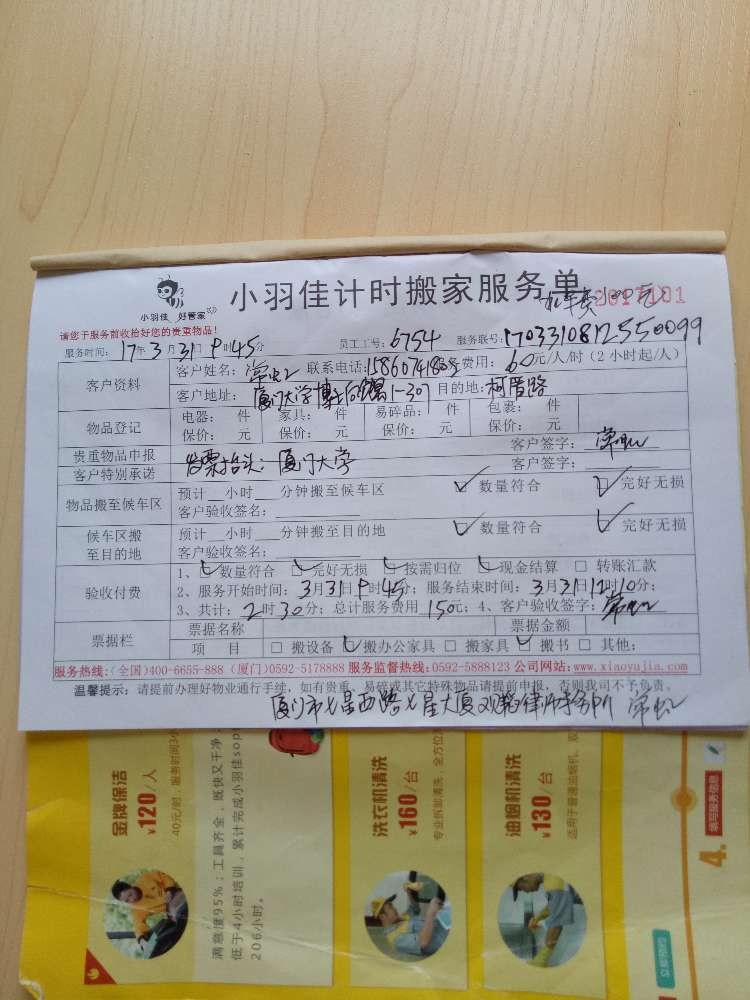 小羽佳 好管家
小羽佳计时搬家服务单
2017101
请您于服务前收拾好您的贵重物品!
服务时间: 17年3月31日9时45分 员工工号: 6754 服务联号: 1703310812550099
客户资料
客户姓名: 联系电话: 服务费用: 60元/人/时 (2小时起/人)
客户地址: 厦门大学博士后 1-307 目的地:
物品登记
电器: 件 家具: 件 易碎品: 件 包裹: 件
保价: 元 保价: 元 保价: 元 保价: 元
贵重物品申报 客户签字:
客户特别承诺 发票抬头: 厦门大学 客户签字:
物品搬至候车区
预计__小时__分钟搬至候车区 ☑数量符合 ☑完好无损
客户验收签名:
候车区搬至目的地
预计__小时__分钟搬至目的地 ☑数量符合 ☑完好无损
客户验收签名:
验收付费
1、☑数量符合 ☑完好无损 ☑按需归位 ☑现金结算 □ 转账汇款
2、服务开始时间: 3月31日9时45分; 服务结束时间: 3月31日12时10分;
3、共计: 2时30分; 总计服务费用 150元; 4、客户验收签字:
票据栏
票据名称 票据金额
项 目 □ 搬设备 ☑搬办公家具 □ 搬家具 ☑搬书 □ 其他:
服务热线:(全国)400-6655-888 (厦门)0592-5178888 服务监督热线:0592-5888123 公司网站:www.xiaoyujia.com
温馨提示: 请提前办理好物业通行手续, 如有贵重、易碎或其它特殊物品请提前申报, 否则我司不予负责。
厦门市七星西路七星大厦 律师事务所
金牌保洁
¥120/人
40元/时, 服务时间3小
满意度95%; 工具齐全, 既快又干净
低于4小时培训, 累计完成小羽佳sop
206小时。
洗衣机清洗
¥160/台
专业拆卸清洗, 全方位
油烟机清洗
¥130/台
适用于普通油烟机、双
4.
填写服务信息
立即预约